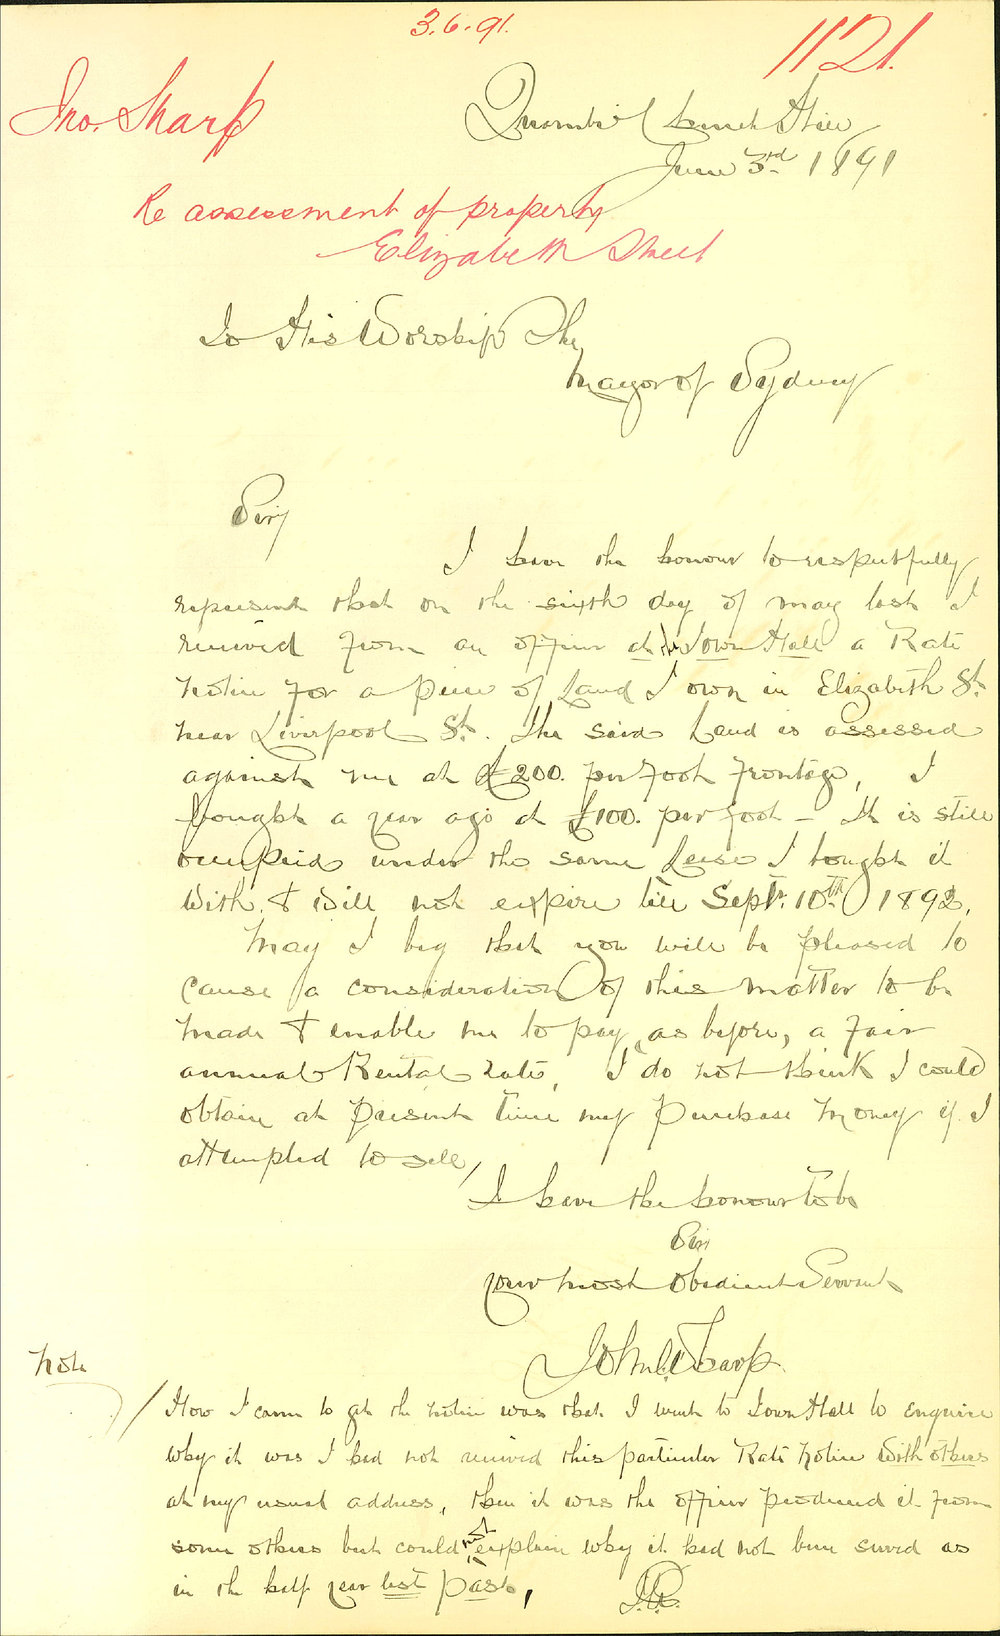 3.6.91.
1121.
Jno. Sharp
Beach Hill
June 3rd 1891
Re assessment of property
Elizabeth Street
To His Worship The
Mayor of Sydney
Sir,
I have the honour to respectfully
represent that on the sixth day of May last I
received from an officer at the Town Hall a Rate
Notice for a piece of Land I own in Elizabeth St.
near Liverpool St. The said Land is assessed
against me at £200. per foot frontage, I
bought a year ago at £100. per foot – It is still
occupied under the same Lease I bought it
with. & will not expire till Sept. 10th 1892.
May I beg that you will be pleased to
cause a consideration of this matter to be
made & enable me to pay, as before, a fair
annual Rental rate, I do not think I could
obtain at present time my purchase money if I
attempted to sell,
I have the honour to be
Sir
your most obedient Servant
John Sharp.
Note
/ How I came to get the notice was that I went to Town Hall to enquire
why it was I had not received this particular Rate Notice with others
at my usual address, then it was the officer produced it from
some others but could not explain why it had not been served as
in the half year last past,